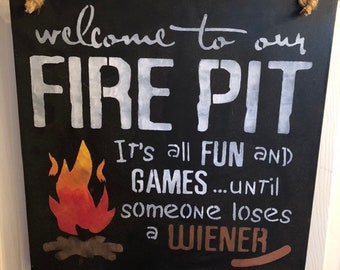 welcome to our
FIRE PIT
It's all FUN AND
GAMES...UNTIL
SOMEONE LOSES
A WIENER